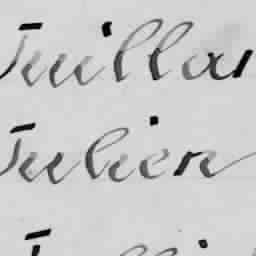 Juillar
Julien